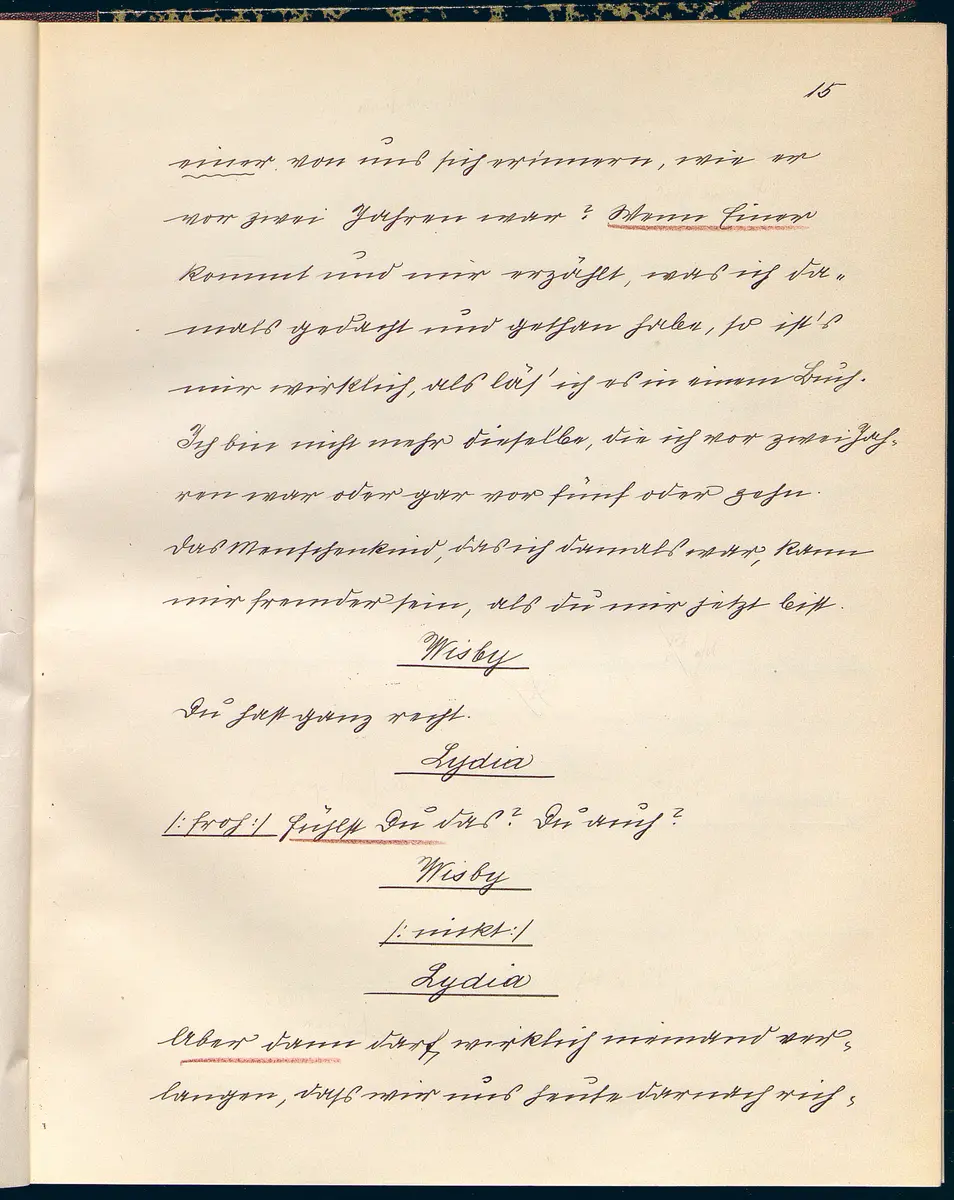 15
einer von uns sich erinnern, wie er
vor zwei Jahren war? Wenn Einer
kommt und mir erzählt, was ich da=
mals gedacht und gethan habe, so ist's
mir wirklich, als läs' ich es in einem Buch.
Ich bin nicht mehr dieselbe, die ich vor zwei Jah=
ren war oder gar vor fünf oder zehn.
Das Menschenkind, das ich damals war, kann
mir fremder sein, als du mir jetzt bist.
Wisby
Du hast ganz recht.
Lydia
/: froh :/ Fühlst Du das? Du auch?
Wisby
/: nickt :/
Lydia
Aber dann darf wirklich niemand ver=
langen, dass wir uns heute darnach rich=